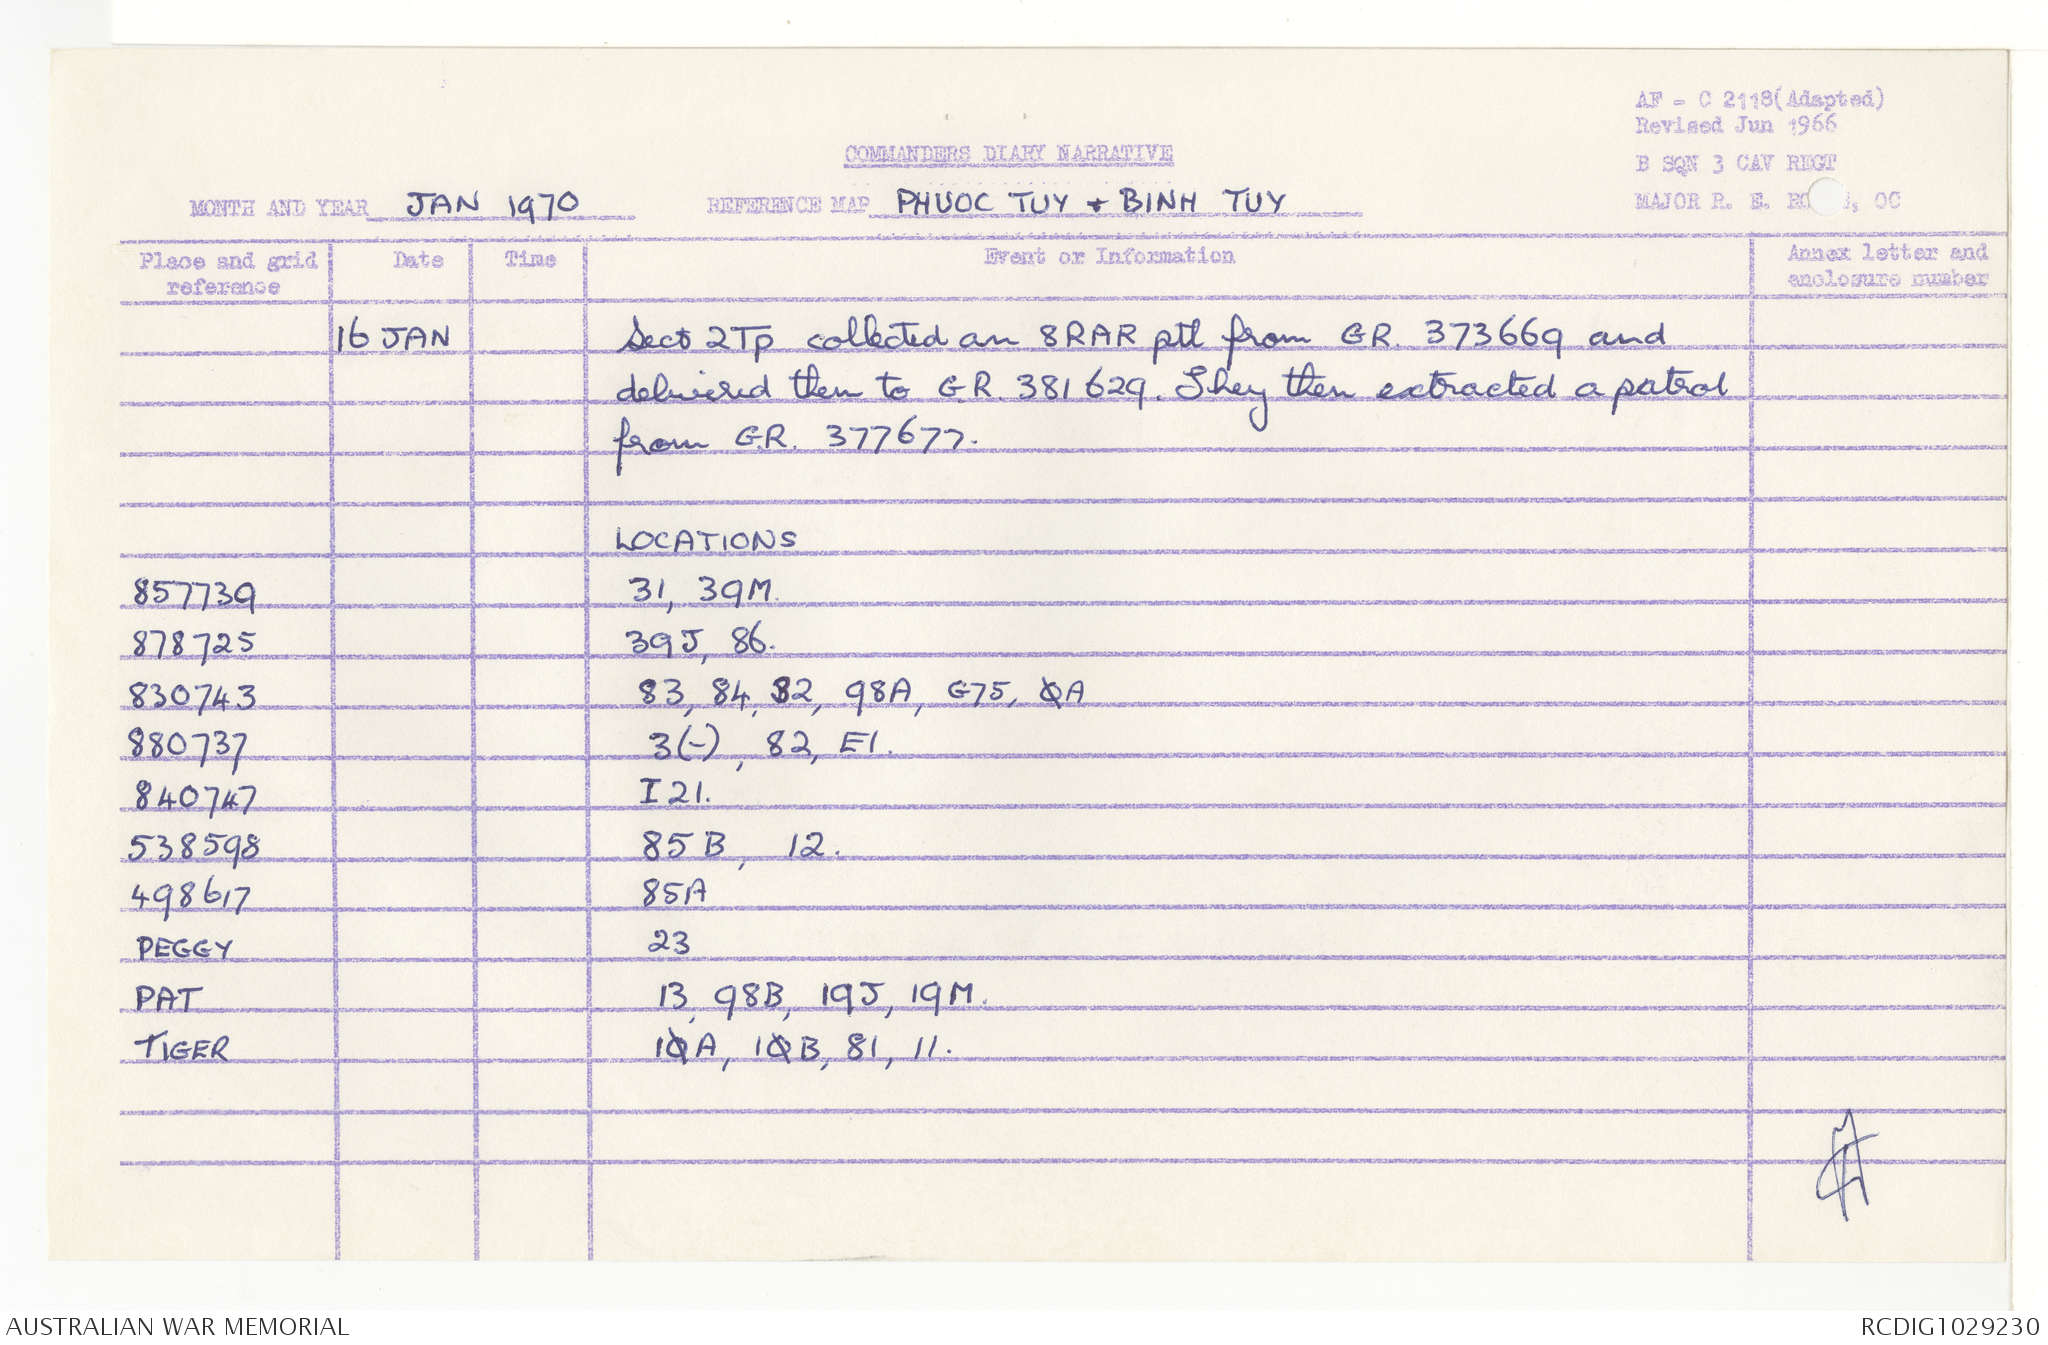 AF - C 2118(Adapted)
Revised Jun 1966
COMMANDERS DIARY NARRATIVE
B SQN 3 CAV REGT
MONTH AND YEAR JAN 1970 REFERENCE MAP PHUOC TUY + BINH TUY MAJOR R. E. , OC
Place and grid reference Date Time Event or Information Annex letter and enclosure number
16 JAN Sect 2Tp collected an 8RAR ptl from GR. 373669 and
delivered them to G.R. 381629. They then extracted a patrol
from G.R. 377677.
LOCATIONS
857739 31, 39M.
878725 39J, 86.
830743 83, 84, 82, 98A, G75, ØA
880737 3(-), 82, E1.
840747 I 21.
538598 85 B, 12.
498617 85A
PEGGY 23
PAT 13, 98B, 19J, 19M.
TIGER 1ØA, 1ØB, 81, 11.
AUSTRALIAN WAR MEMORIAL RCDIG1029230